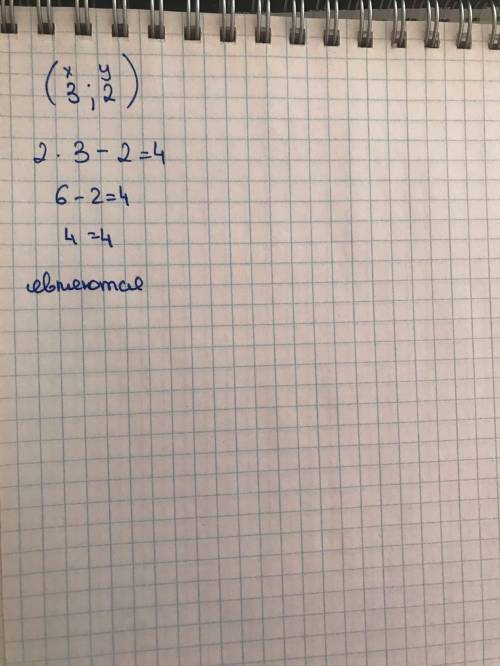 x y
(3 ; 2)
2 · 3 - 2 = 4
6 - 2 = 4
4 = 4
являются